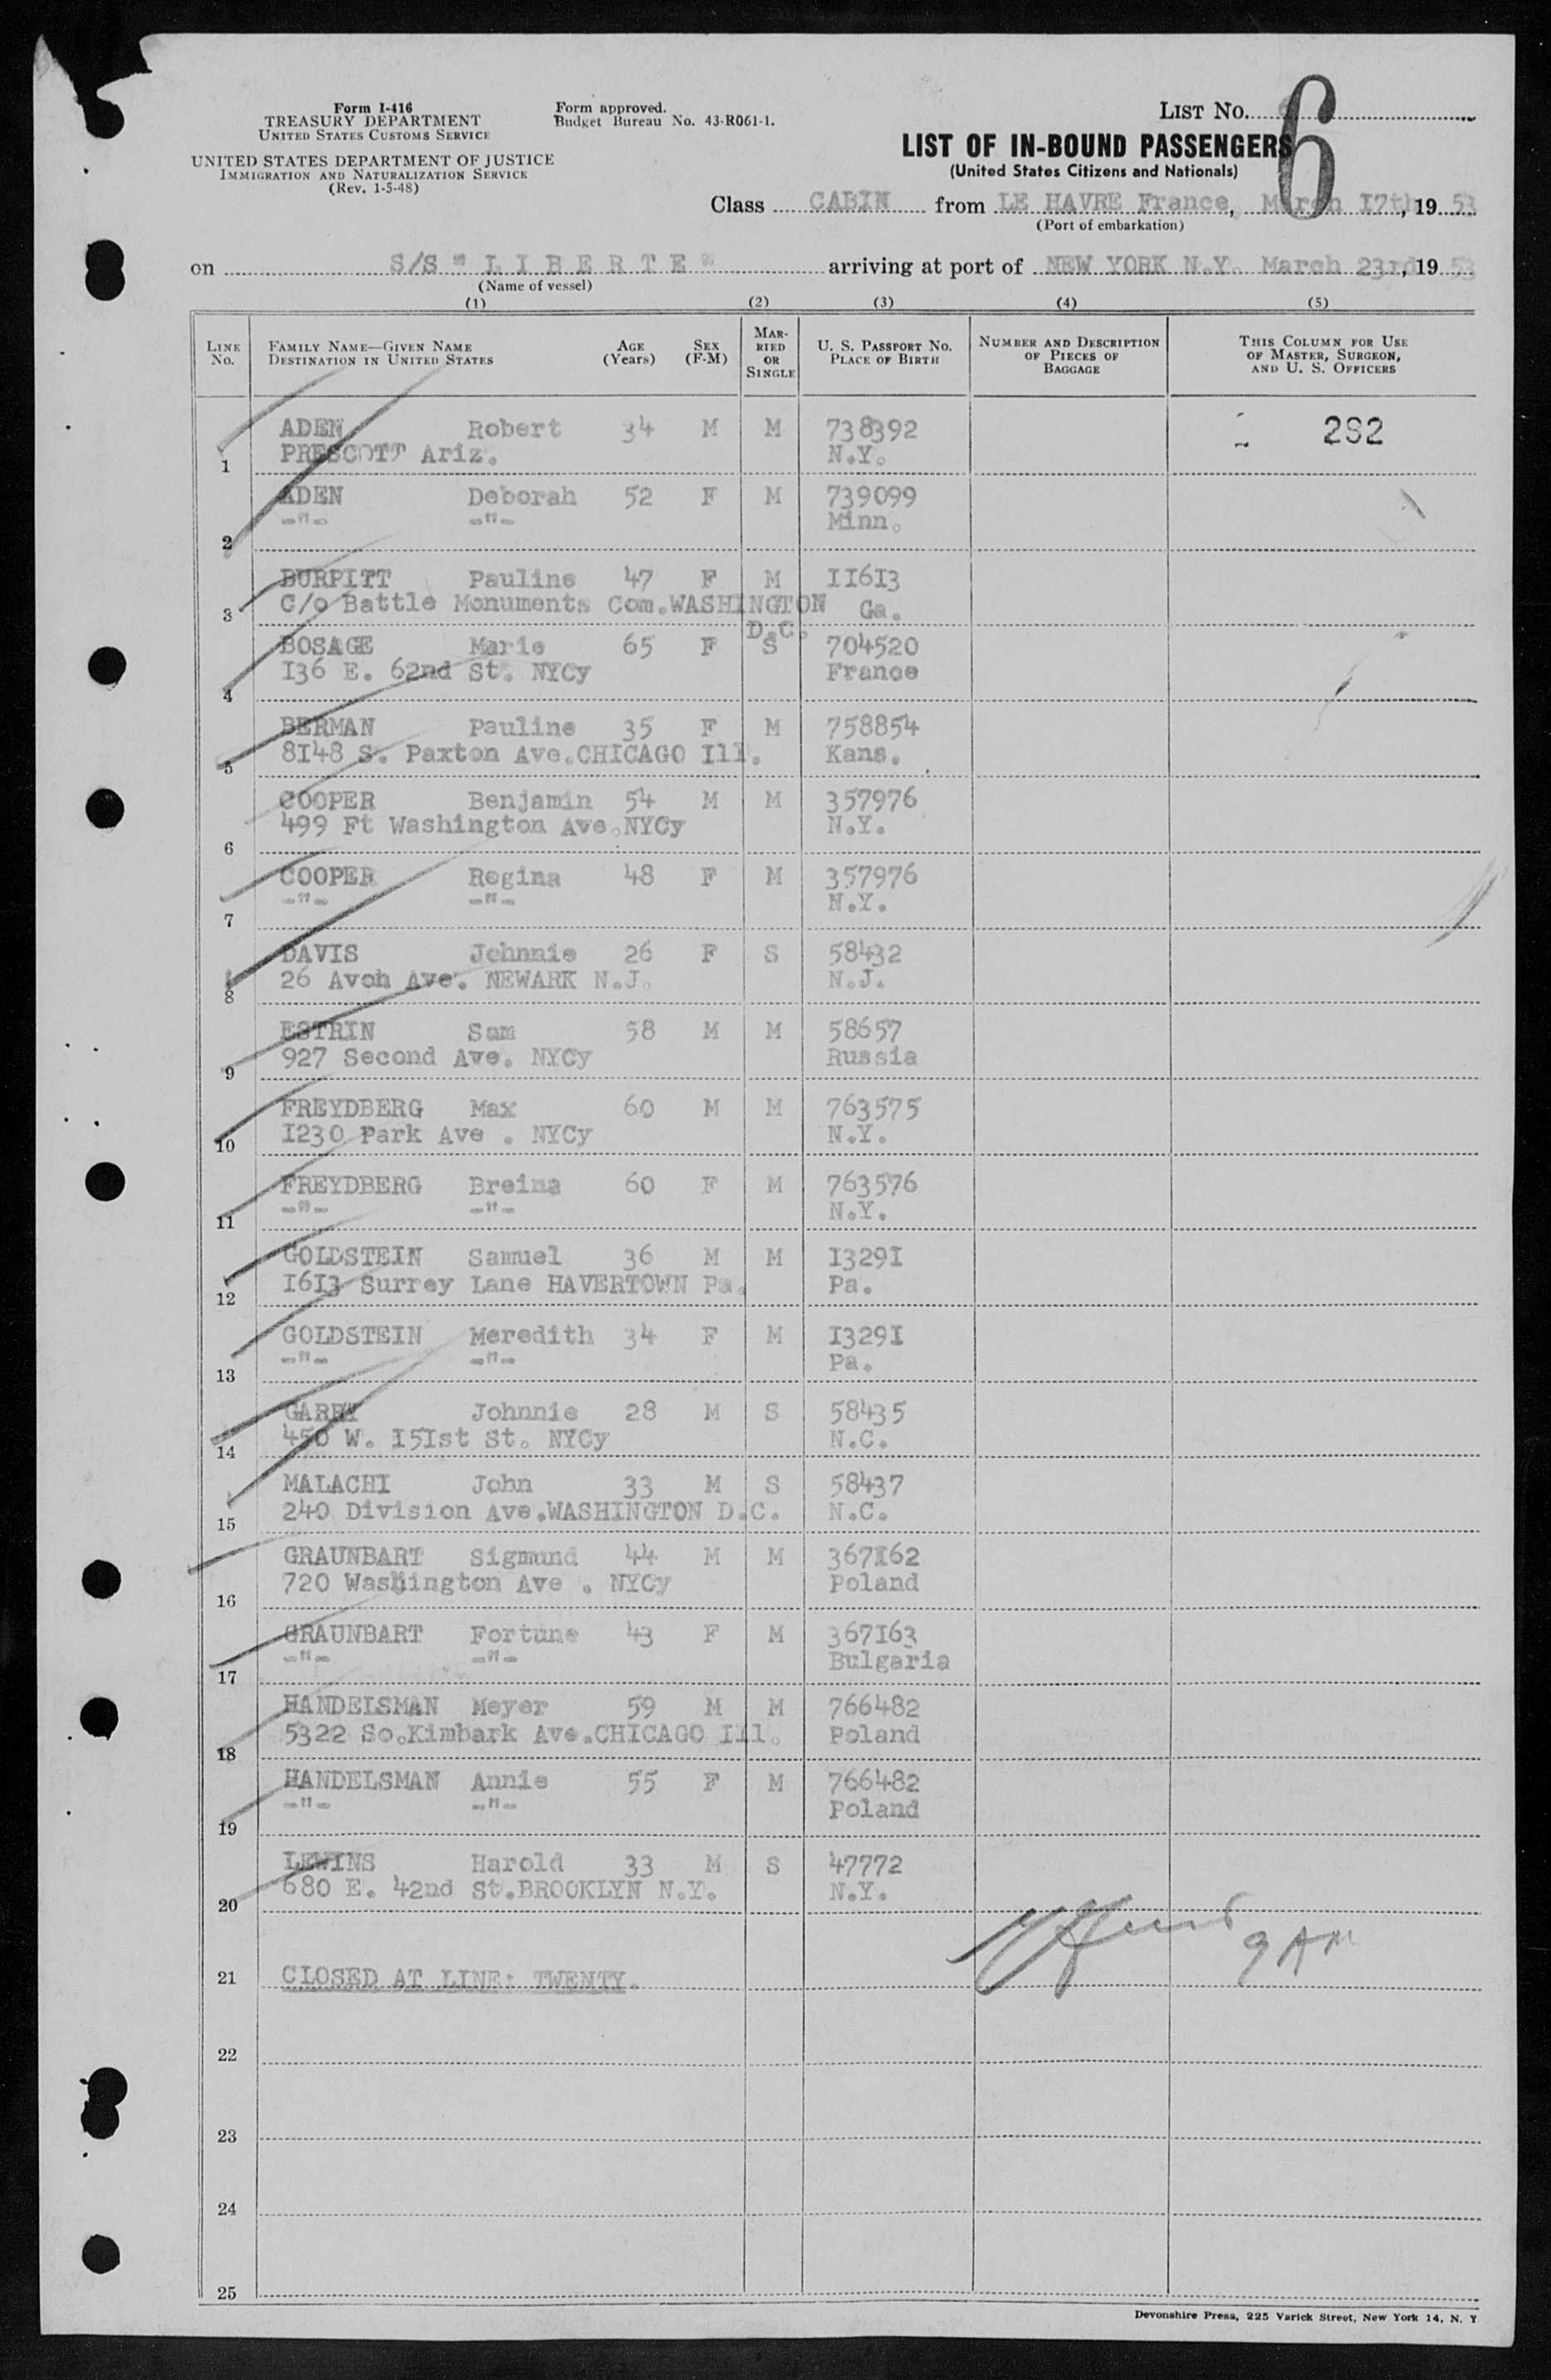 Form I-416
TREASURY DEPARTMENT
UNITED STATES CUSTOMS SERVICE
UNITED STATES DEPARTMENT OF JUSTICE
IMMIGRATION AND NATURALIZATION SERVICE
(Rev. 1-5-48)
Form approved.
Budget Bureau No. 43-R061-1.
LIST NO. 6
LIST OF IN-BOUND PASSENGERS
(United States Citizens and Nationals)
Class CABIN from LE HAVRE France, March 17th, 1953
(Port of embarkation)
on S/S "LIBERTE" arriving at port of NEW YORK N.Y. March 23rd, 1953
(Name of vessel)
(1) (2) (3) (4) (5)
LINE NO. FAMILY NAME—GIVEN NAME DESTINATION IN UNITED STATES AGE (Years) SEX (F-M) MARRIED OR SINGLE U. S. PASSPORT NO. PLACE OF BIRTH NUMBER AND DESCRIPTION OF PIECES OF BAGGAGE THIS COLUMN FOR USE OF MASTER, SURGEON, AND U. S. OFFICERS
ADEN Robert 34 M M 738392 282
1 PRESCOTT Ariz. N.Y.
ADEN Deborah 52 F M 739099
2 -"- -"- Minn.
BURPITT Pauline 47 F M II6I3
3 C/o Battle Monuments Com.WASHINGTON D.C. Ga.
BOSAGE Marie 65 F S 704520
4 I36 E. 62nd St. NYCy France
BERMAN Pauline 35 F M 758854
5 8I48 S. Paxton Ave.CHICAGO Ill. Kans.
COOPER Benjamin 54 M M 357976
6 499 Ft Washington Ave.NYCy N.Y.
COOPER Regina 48 F M 357976
7 -"- -"- N.Y.
DAVIS Johnnie 26 F S 58432
8 26 Avon Ave. NEWARK N.J. N.J.
ESTRIN Sam 58 M M 58657
9 927 Second Ave. NYCy Russia
FREYDBERG Max 60 M M 763575
10 I230 Park Ave . NYCy N.Y.
FREYDBERG Breina 60 F M 763576
11 -"- -"- N.Y.
GOLDSTEIN Samuel 36 M M I329I
12 I6I3 Surrey Lane HAVERTOWN Pa. Pa.
GOLDSTEIN Meredith 34 F M I329I
13 -"- -"- Pa.
GARRY Johnnie 28 M S 58435
14 450 W. I5Ist St. NYCy N.C.
MALACHI John 33 M S 58437
15 240 Division Ave.WASHINGTON D.C. N.C.
GRAUNBART Sigmund 44 M M 367I62
16 720 Washington Ave . NYCy Poland
GRAUNBART Fortune 43 F M 367I63
17 -"- -"- Bulgaria
HANDELSMAN Meyer 59 M M 766482
18 5322 So.Kimbark Ave.CHICAGO Ill. Poland
HANDELSMAN Annie 55 F M 766482
19 -"- -"- Poland
LEWINS Harold 33 M S 47772
20 680 E. 42nd St.BROOKLYN N.Y. N.Y.
9 AM
21 CLOSED AT LINE: TWENTY.
22
23
24
25
Devonshire Press, 225 Varick Street, New York 14, N. Y.